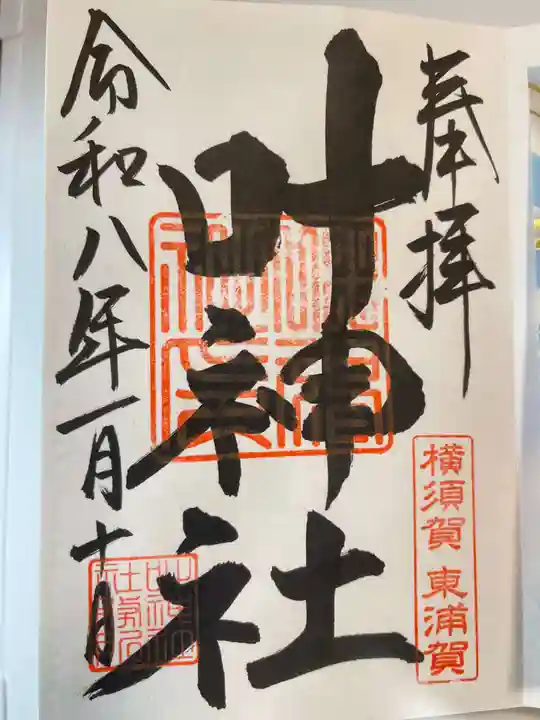 奉拝
横須賀 東浦賀
叶神社
令和八年一月十一日